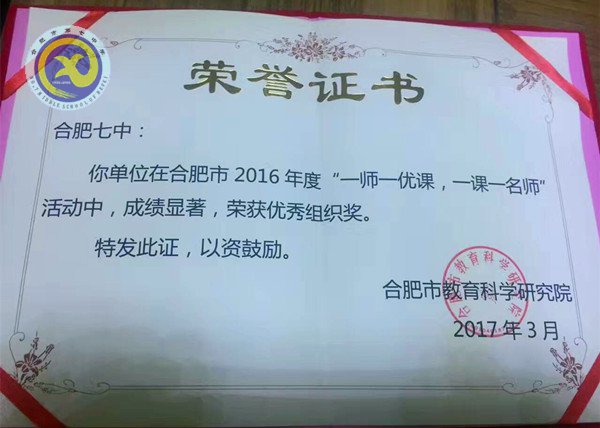 合肥市第七中学
荣誉证书
合肥七中：
你单位在合肥市 2016 年度“一师一优课，一课一名师”
活动中，成绩显著，荣获优秀组织奖。
特发此证，以资鼓励。
合肥市教育科学研究院
合肥市教育科学研究院
2017 年 3 月